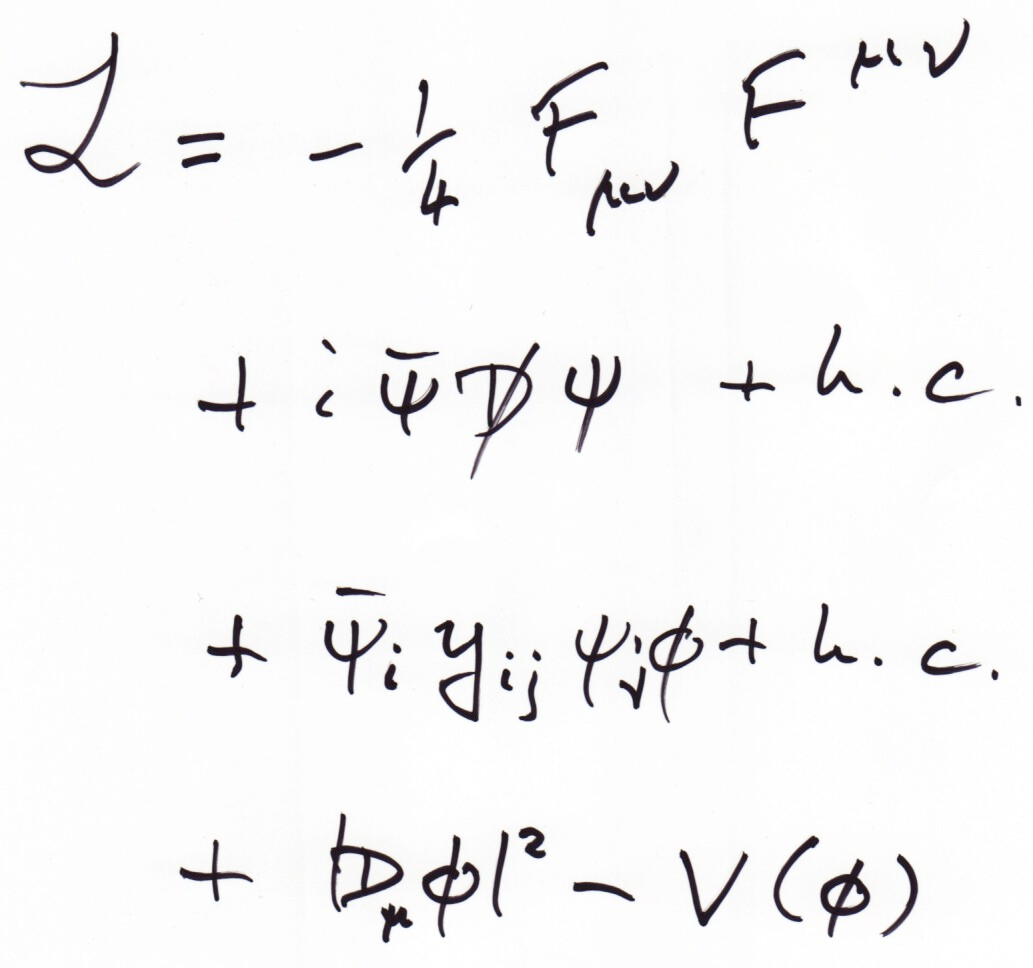 ℒ = - 1/4 F_μν F^μν
+ i ψ̄ D̸ ψ + h.c.
+ ψ̄_i y_ij ψ_j φ + h.c.
+ |D_μ φ|² - V(φ)